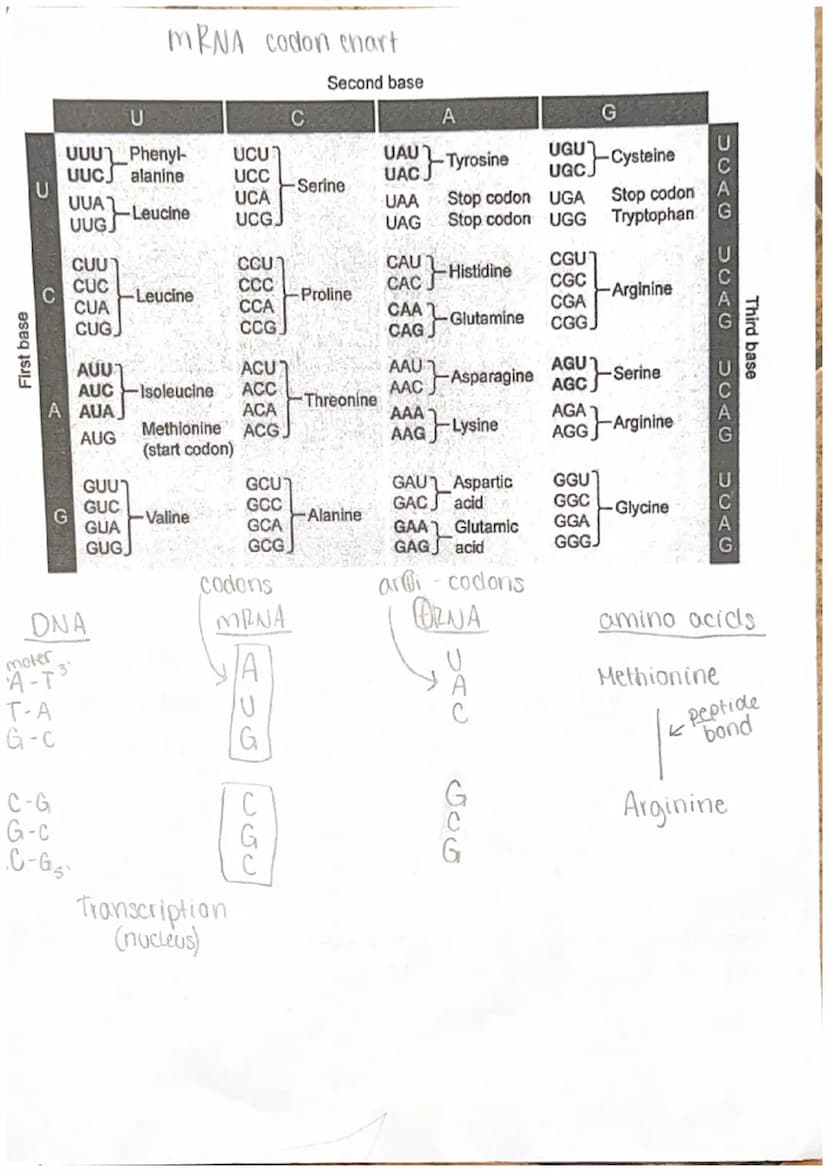 mRNA codon chart
Second base
U C A G
First base
Third base
U
UUU Phenyl-
UUC alanine
UUA
UUG Leucine
UCU
UCC
UCA
UCG
Serine
UAU
UAC
Tyrosine
UAA Stop codon
UAG Stop codon
UGU
UGC
Cysteine
UGA Stop codon
UGG Tryptophan
U
C
A
G
C
CUU
CUC
CUA
CUG
Leucine
CCU
CCC
CCA
CCG
Proline
CAU
CAC
Histidine
CAA
CAG
Glutamine
CGU
CGC
CGA
CGG
Arginine
U
C
A
G
A
AUU
AUC
AUA
Isoleucine
AUG Methionine
(start codon)
ACU
ACC
ACA
ACG
Threonine
AAU
AAC
Asparagine
AAA
AAG
Lysine
AGU
AGC
Serine
AGA
AGG
Arginine
U
C
A
G
G
GUU
GUC
GUA
GUG
Valine
GCU
GCC
GCA
GCG
Alanine
GAU Aspartic
GAC acid
GAA Glutamic
GAG acid
GGU
GGC
GGA
GGG
Glycine
U
C
A
G
codons
- codons
DNA mRNA tRNA amino acids
A-T 3' A U Methionine
T-A U A
G-C G C
peptide
bond
C-G C G Arginine
G-C G C
C-G 5' C G
Transcription
(nucleus)